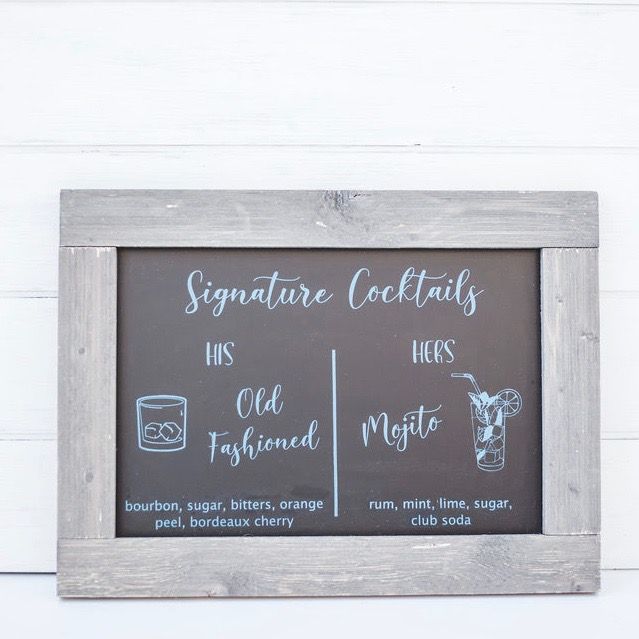 Signature Cocktails
HIS
Old
Fashioned
bourbon, sugar, bitters, orange
peel, bordeaux cherry
HERS
Mojito
rum, mint, lime, sugar,
club soda